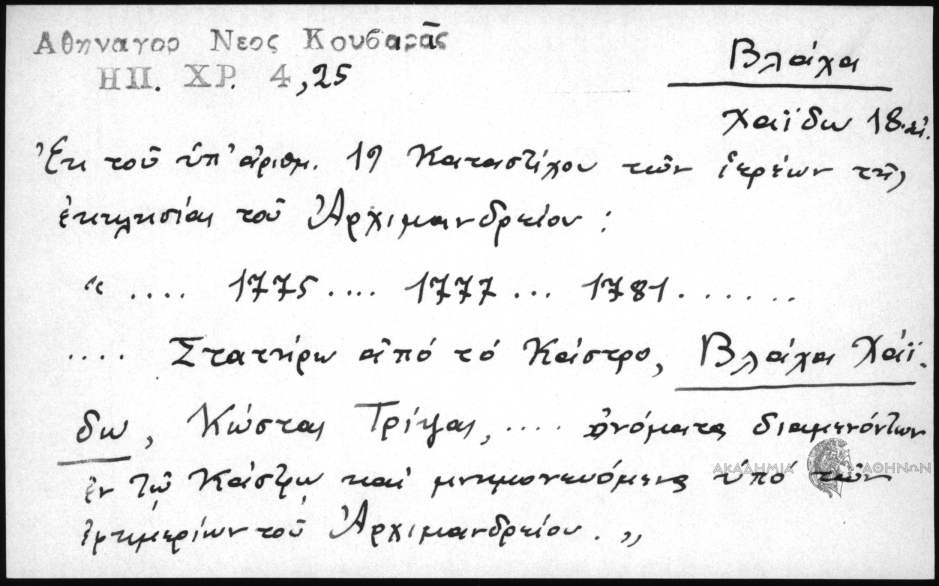 Ἀθηναγορ Νεος Κουβαρᾶς
ΗΠ. ΧΡ. 4,25
Βλάχα
Χαΐδω 18.αἰ.
Ἐκ τοῦ ὑπ' ἀριθμ. 19 Καταστίχου τῶν ἱερέων τῆς
ἐκκλησίας τοῦ Ἀρχιμανδρείου :
“ .... 1775 .... 1777 ... 1781 ......
.... Στατήρω ἀπό τό Κάστρο, Βλάχα Χάϊ-
δω, Κώστας Τρίψας, .... ὀνόματα διαμενόντων
ἐν τῷ Κάστρῳ καί μνημονευόμενα ὑπό τῶν
ἐφημερίων τοῦ Ἀρχιμανδρείου. „
ΑΚΑΔΗΜΙΑ ΑΘΗΝΩΝ